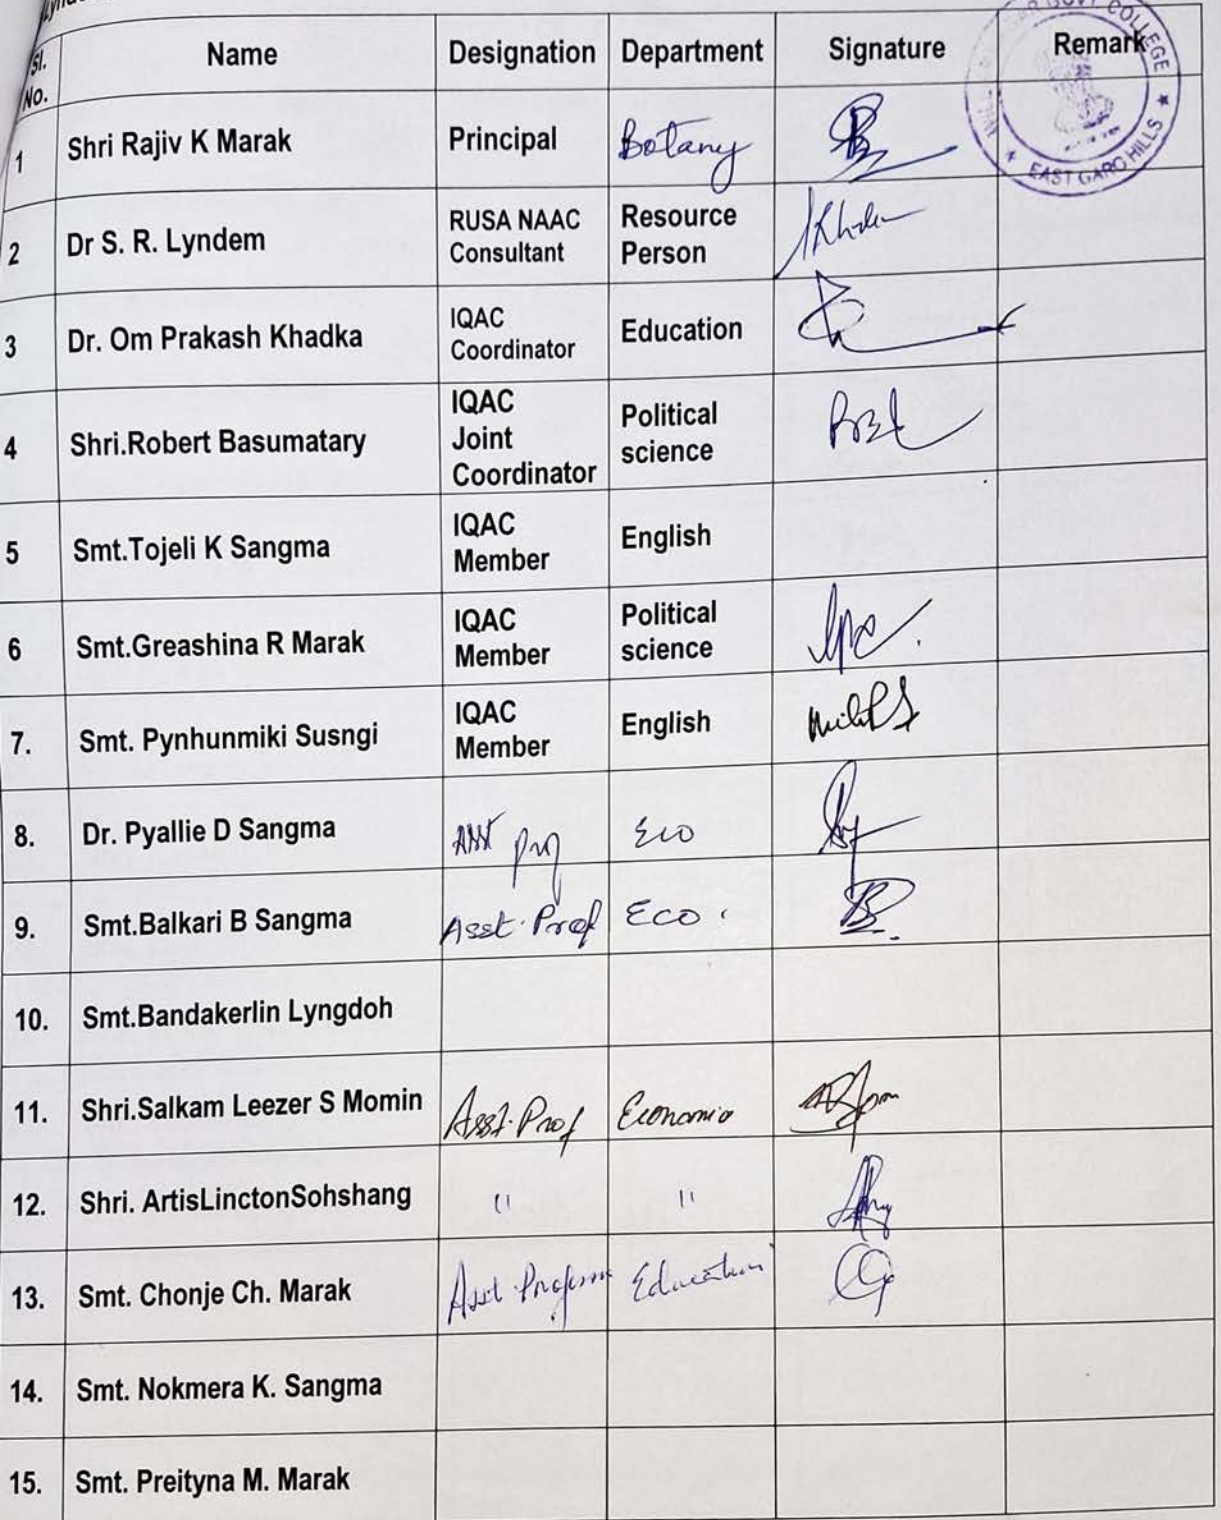 Sl. No. Name Designation Department Signature Remark
GOVT COLLEGE
EAST GARO HILLS
1 Shri Rajiv K Marak Principal Botany
2 Dr S. R. Lyndem RUSA NAAC Consultant Resource Person
3 Dr. Om Prakash Khadka IQAC Coordinator Education
4 Shri.Robert Basumatary IQAC Joint Coordinator Political science
5 Smt.Tojeli K Sangma IQAC Member English
6 Smt.Greashina R Marak IQAC Member Political science
7. Smt. Pynhunmiki Susngi IQAC Member English
8. Dr. Pyallie D Sangma Asst Prof Eco
9. Smt.Balkari B Sangma Asst. Prof Eco.
10. Smt.Bandakerlin Lyngdoh
11. Shri.Salkam Leezer S Momin Asst. Prof Economic
12. Shri. ArtisLinctonSohshang " "
13. Smt. Chonje Ch. Marak Asst. Professor Education
14. Smt. Nokmera K. Sangma
15. Smt. Preityna M. Marak